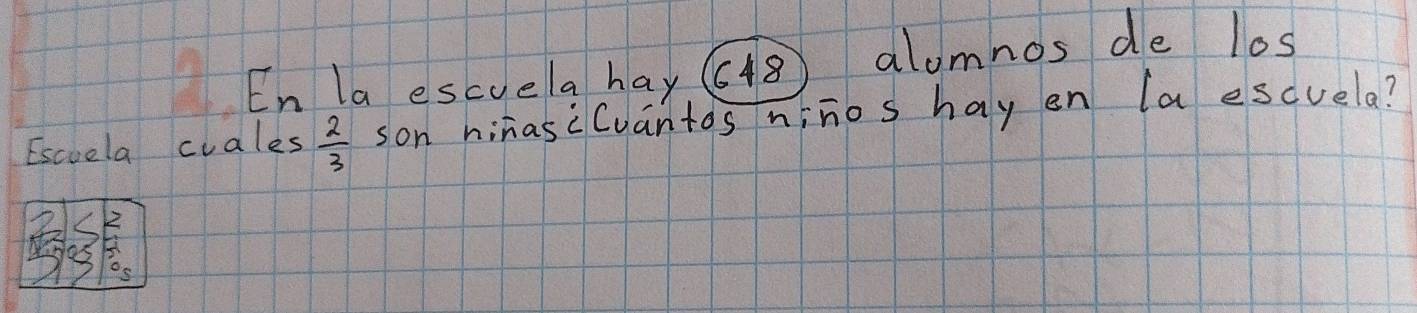 2. En la escuela hay 648 alumnos de los
cuales 2/3 son niñas ¿Cuántos niños hay en la escuela?
Escuela